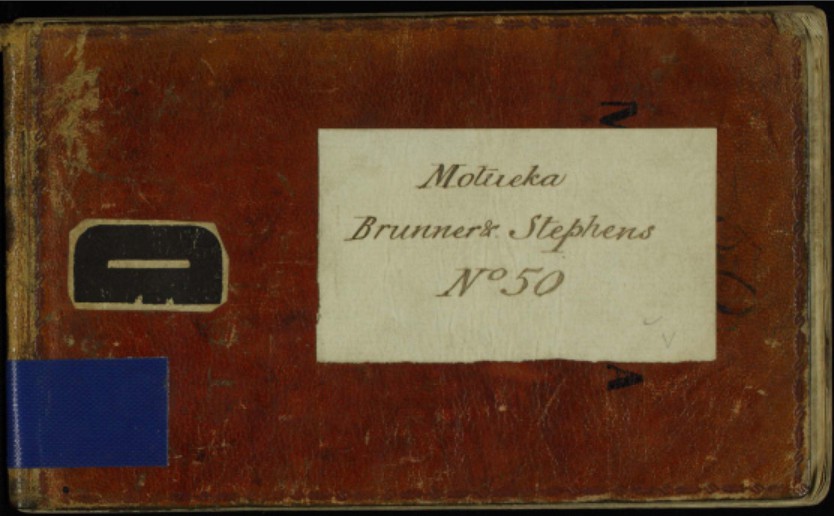 Motueka
Brunner & Stephens
Nº 50